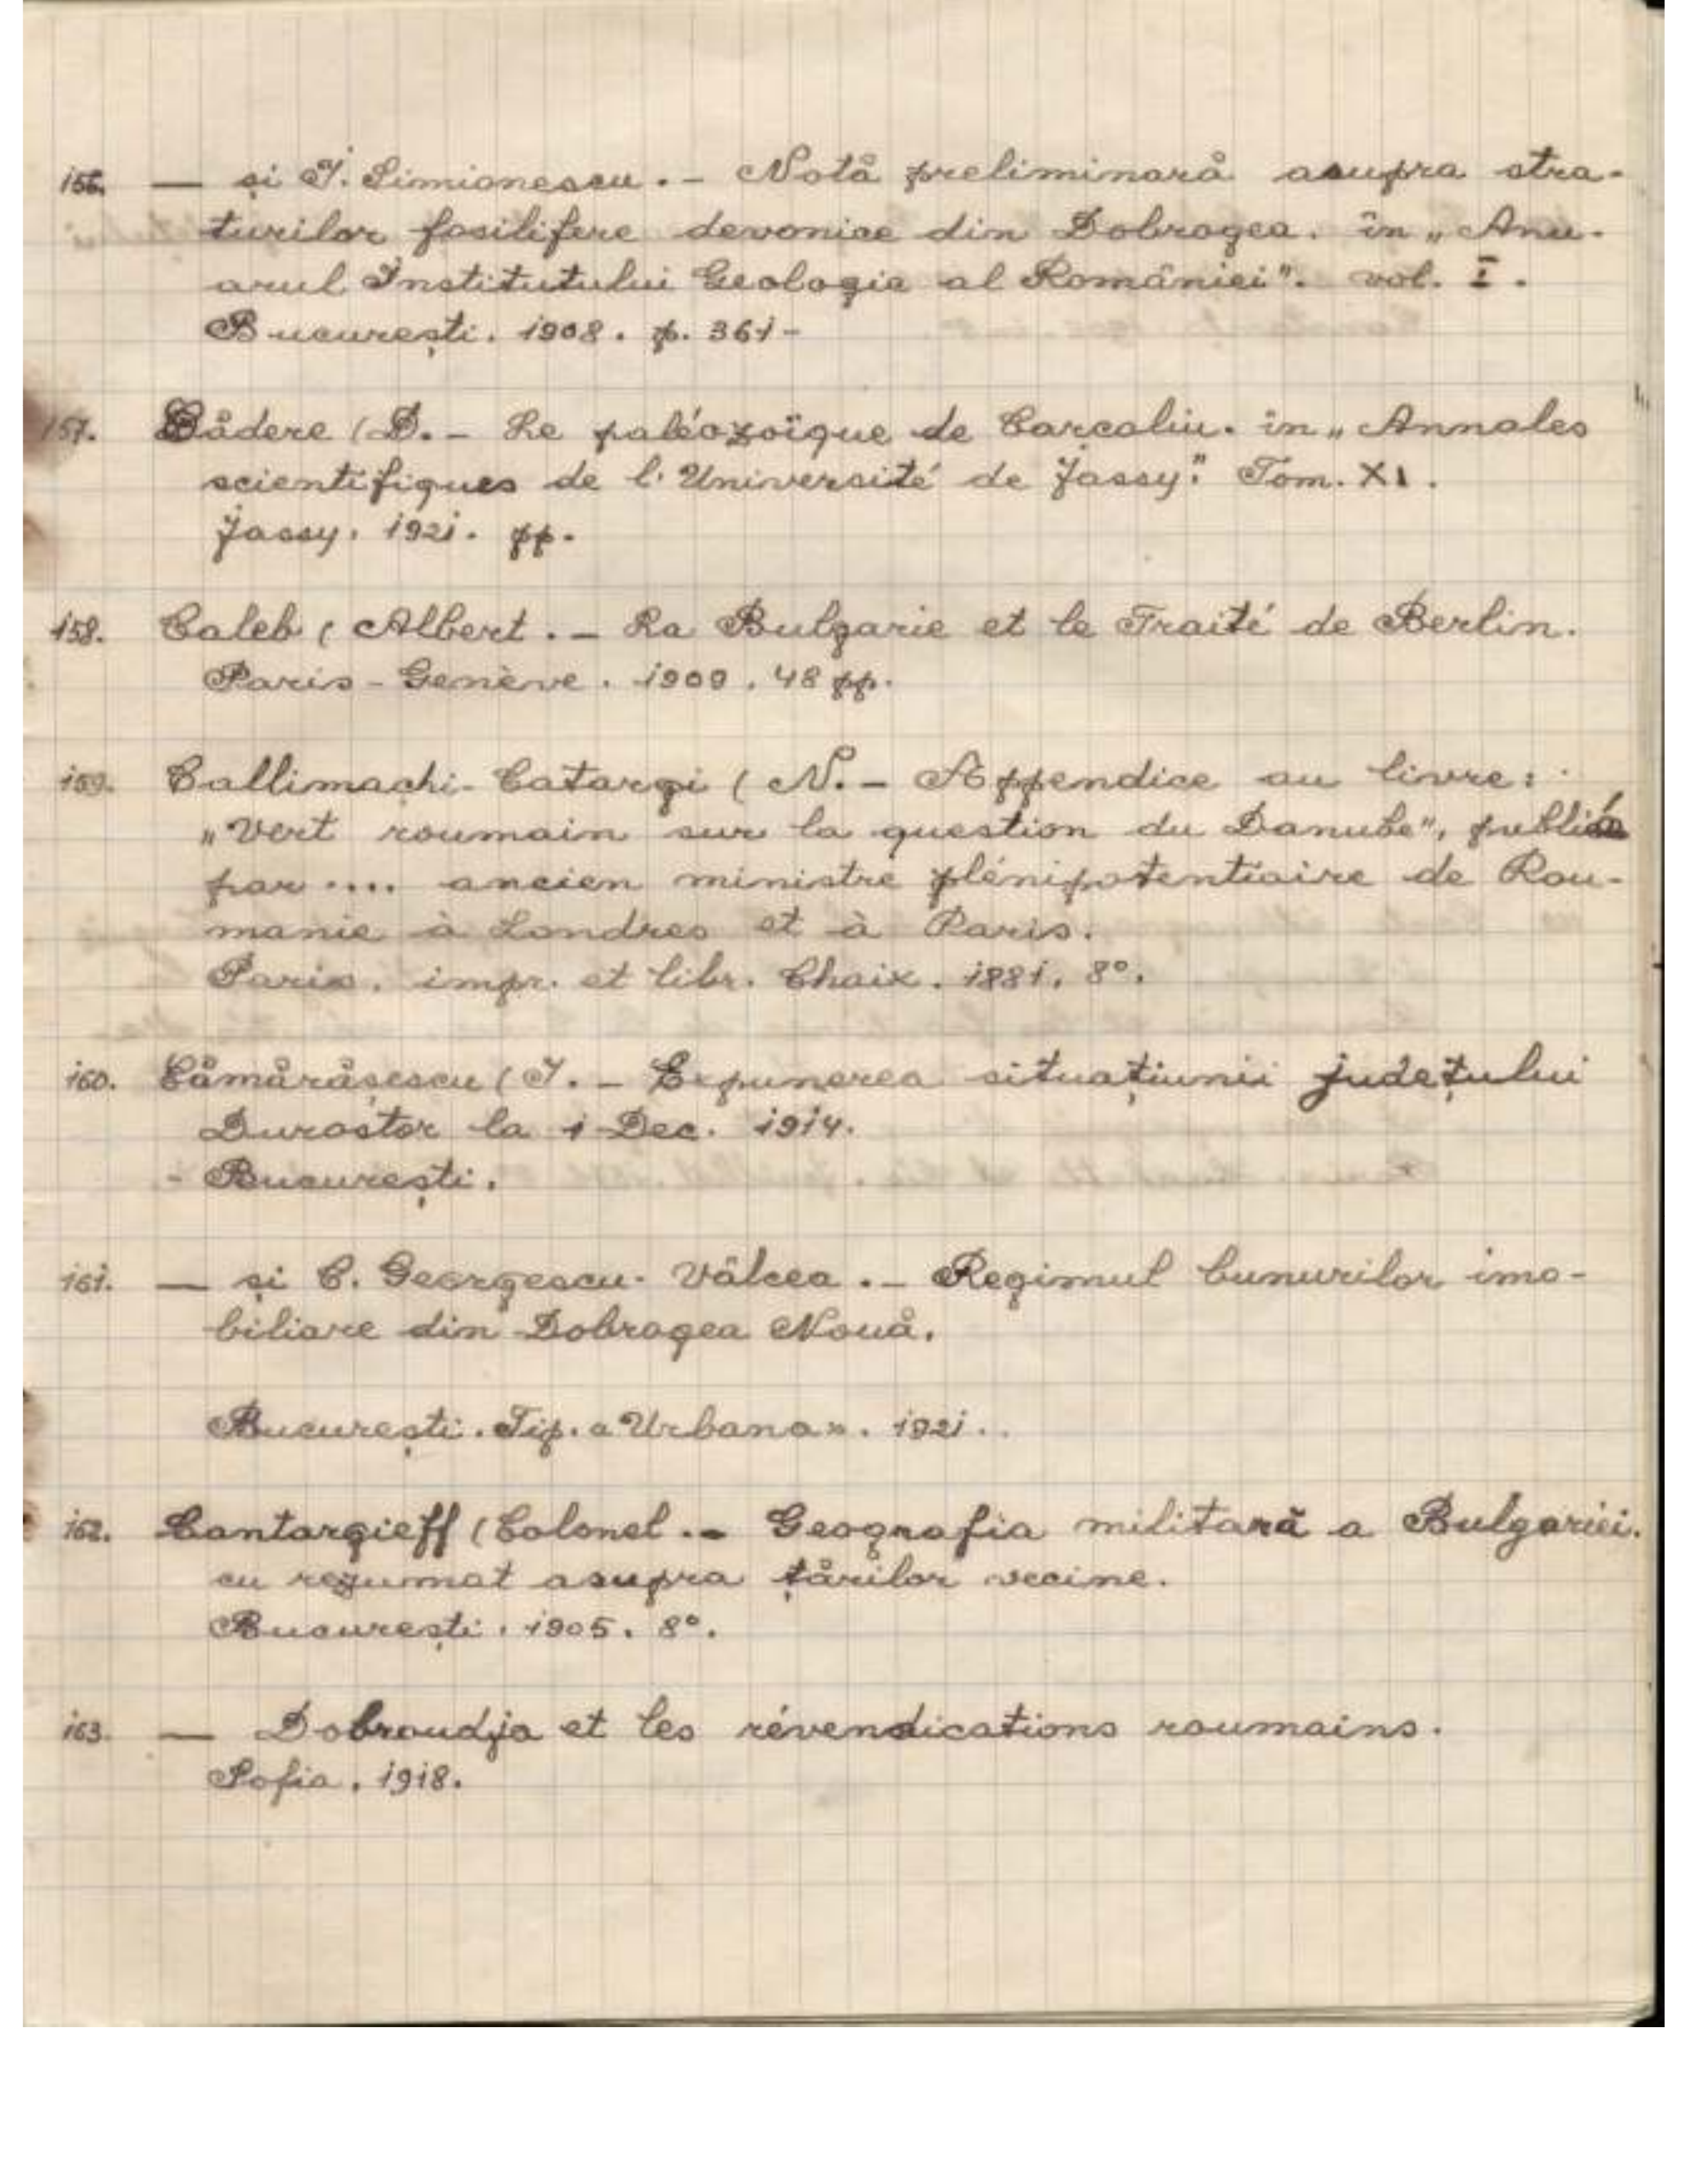 156. — și I. Simionescu. - Notă preliminară asupra stra-
turilor fosilifere devonice din Dobrogea. în „Anu-
arul Institutului Geologic al României". vol. I.
București. 1908. p. 361-
157. Cădere (D. - Le paléozoïque de Carcaliu. în „Annales
scientifiques de l'Université de Jassy." Tom. XI.
Jassy. 1921. pp.
158. Caleb (Albert. - La Bulgarie et le Traité de Berlin.
Paris - Genève. 1909. 48 pp.
159. Callimachi-Catargi (N. - Appendice au livre:
„Vert roumain sur la question du Danube", publié
par .... ancien ministre plénipotentiaire de Rou-
manie à Londres et à Paris.
Paris. impr. et libr. Chaix. 1881. 8°.
160. Cămărășescu (I. - Expunerea situațiunii județului
Durostor la 1 Dec. 1914.
- București.
161. — și C. Georgescu-Vâlcea. - Regimul bunurilor imo-
biliare din Dobrogea Nouă.
București. Tip. «Urbana». 1921.
162. Cantargieff (Colonel. - Geografia militară a Bulgariei.
cu rezumat asupra țărilor vecine.
București. 1905. 8°.
163. — Dobroudja et les révendications roumains.
Sofia. 1918.